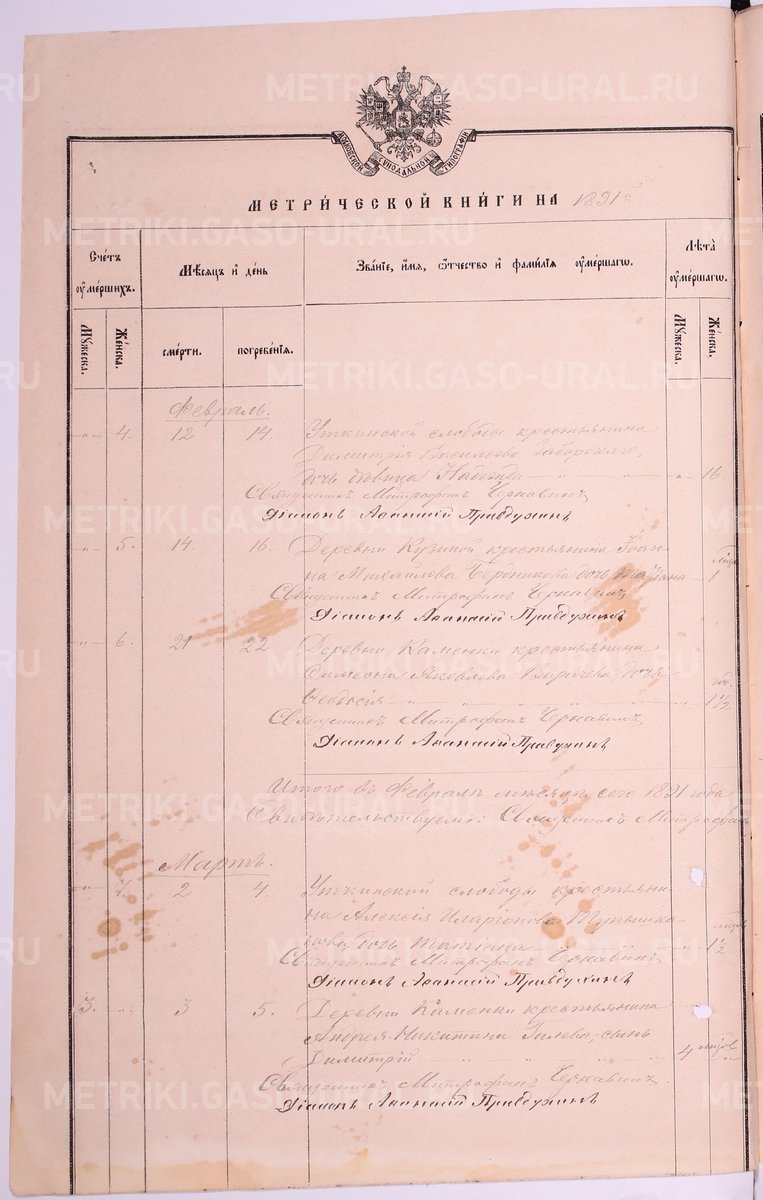 МОСКОВСКОЙ СУНОДАЛЬНОЙ ТИПОГРАФІИ
МЕТРИ́ЧЕСКОЙ КНИ́ГИ НА 1891 й
Сче́тъ ᲂу҆ме́ршихъ.
Мѣ́сяцъ и҆ де́нь
Зва́нїе, и҆́мя, ѻ҆́тчество и҆ фами́лїя ᲂу҆ме́ршагѡ.
Лѣ́та ᲂу҆ме́ршагѡ.
Мꙋ́жеска.
Же́нска.
сме́рти.
погребе́нїя.
Мꙋ́жеска.
Же́нска.
Февраль.
„ 4. 12 14. Уткинской слободы крестьянина
Димитрія Васильева
дочь дѣвица Надежда „ 16.
Священникъ Митрофанъ Чернавинъ
Діаконъ Аѳанасій Правдухинъ
„ 5. 14. 16. Деревни крестьянина Іоан-
на Михайлова дочь 1
Священникъ Митрофанъ Чернавинъ
Діаконъ Аѳанасій Правдухинъ
„ 6. 21 22 Деревни Каменки крестьянина
Симеона Яковлева дочь
Ѳеодосія год. 1½
Священникъ Митрофанъ Чернавинъ
Діаконъ Аѳанасій Правдухинъ
Итого въ Февралѣ мѣсяцѣ сего 1891 года
Свидѣтельствуемъ: Священникъ Митрофанъ
Мартъ.
„ 7. 2 4. Уткинской слободы крестьяни-
на Алексія Иларіонова
дочь Татіана 1½
Священникъ Митрофанъ Чернавинъ
Діаконъ Аѳанасій Правдухинъ
3. „ 3 5. Деревни Каменки крестьянина
Андрея Никитина Гилева, сынъ
Димитрій 4
Священникъ Митрофанъ Чернавинъ
Діаконъ Аѳанасій Правдухинъ
METRIKI.GASO-URAL.RU